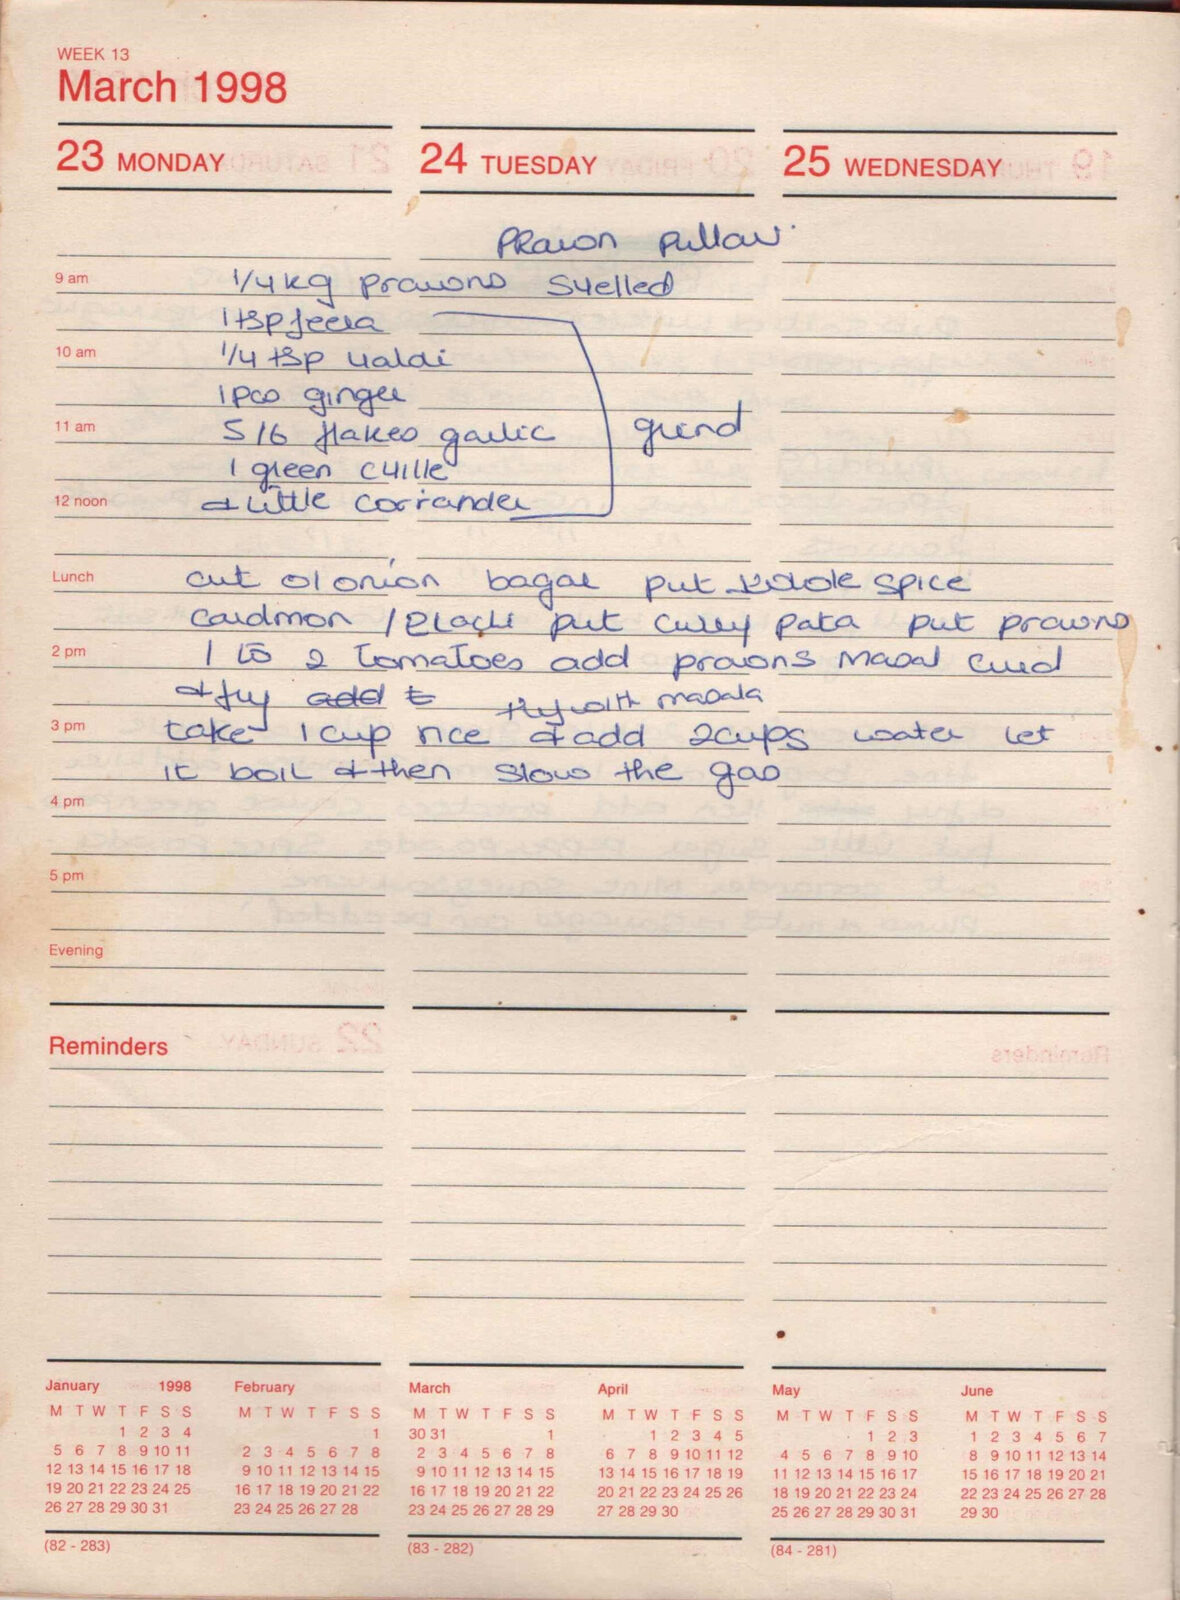 WEEK 13
March 1998
23 MONDAY
24 TUESDAY
25 WEDNESDAY
Prawn Pullav
9 am
1/4 kg prawns shelled
1 tsp jeera
10 am
1/4 tsp haldi
1 pco ginger
11 am
5/6 flakes garlic
grind
1 green chille
12 noon
& little corriander
Lunch
cut 01 onion bagar put whole spice
cardmon / elachi put curry pata put prawns
2 pm
1 to 2 tomatoes add prawns masal curd
& fry add t fry with masala
3 pm
take 1 cup rice & add 2 cups water let
it boil & then slow the gas
4 pm
5 pm
Evening
Reminders
January 1998
M T W T F S S
1 2 3 4
5 6 7 8 9 10 11
12 13 14 15 16 17 18
19 20 21 22 23 24 25
26 27 28 29 30 31
February
M T W T F S S
1
2 3 4 5 6 7 8
9 10 11 12 13 14 15
16 17 18 19 20 21 22
23 24 25 26 27 28
March
M T W T F S S
30 31 1
2 3 4 5 6 7 8
9 10 11 12 13 14 15
16 17 18 19 20 21 22
23 24 25 26 27 28 29
April
M T W T F S S
1 2 3 4 5
6 7 8 9 10 11 12
13 14 15 16 17 18 19
20 21 22 23 24 25 26
27 28 29 30
May
M T W T F S S
1 2 3
4 5 6 7 8 9 10
11 12 13 14 15 16 17
18 19 20 21 22 23 24
25 26 27 28 29 30 31
June
M T W T F S S
1 2 3 4 5 6 7
8 9 10 11 12 13 14
15 16 17 18 19 20 21
22 23 24 25 26 27 28
29 30
(82 - 283)
(83 - 282)
(84 - 281)